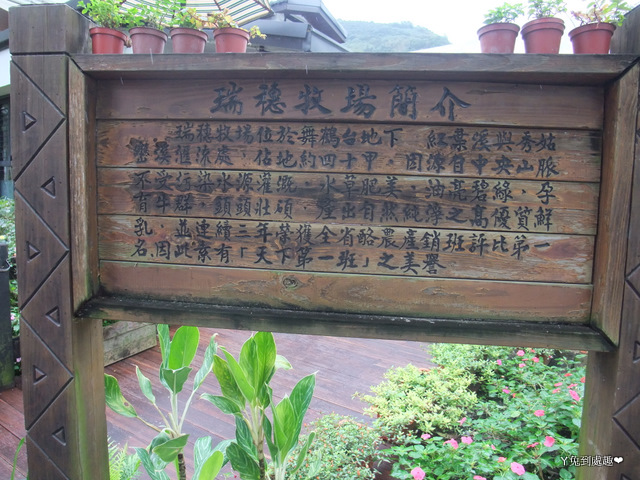 瑞穗牧場簡介
瑞穗牧場位於舞鶴台地下 紅葉溪與秀姑
巒溪匯流處,佔地約四十甲。因源自中央山脈
不受污染水源灌溉,水草肥美,油亮碧綠,孕
育牛群,頭頭壯碩,產出自然純淨之高優質鮮
乳,並連續三年榮獲全省酪農產銷班評比第一
名,因此素有「天下第一班」之美譽
丫兔到處趣❤